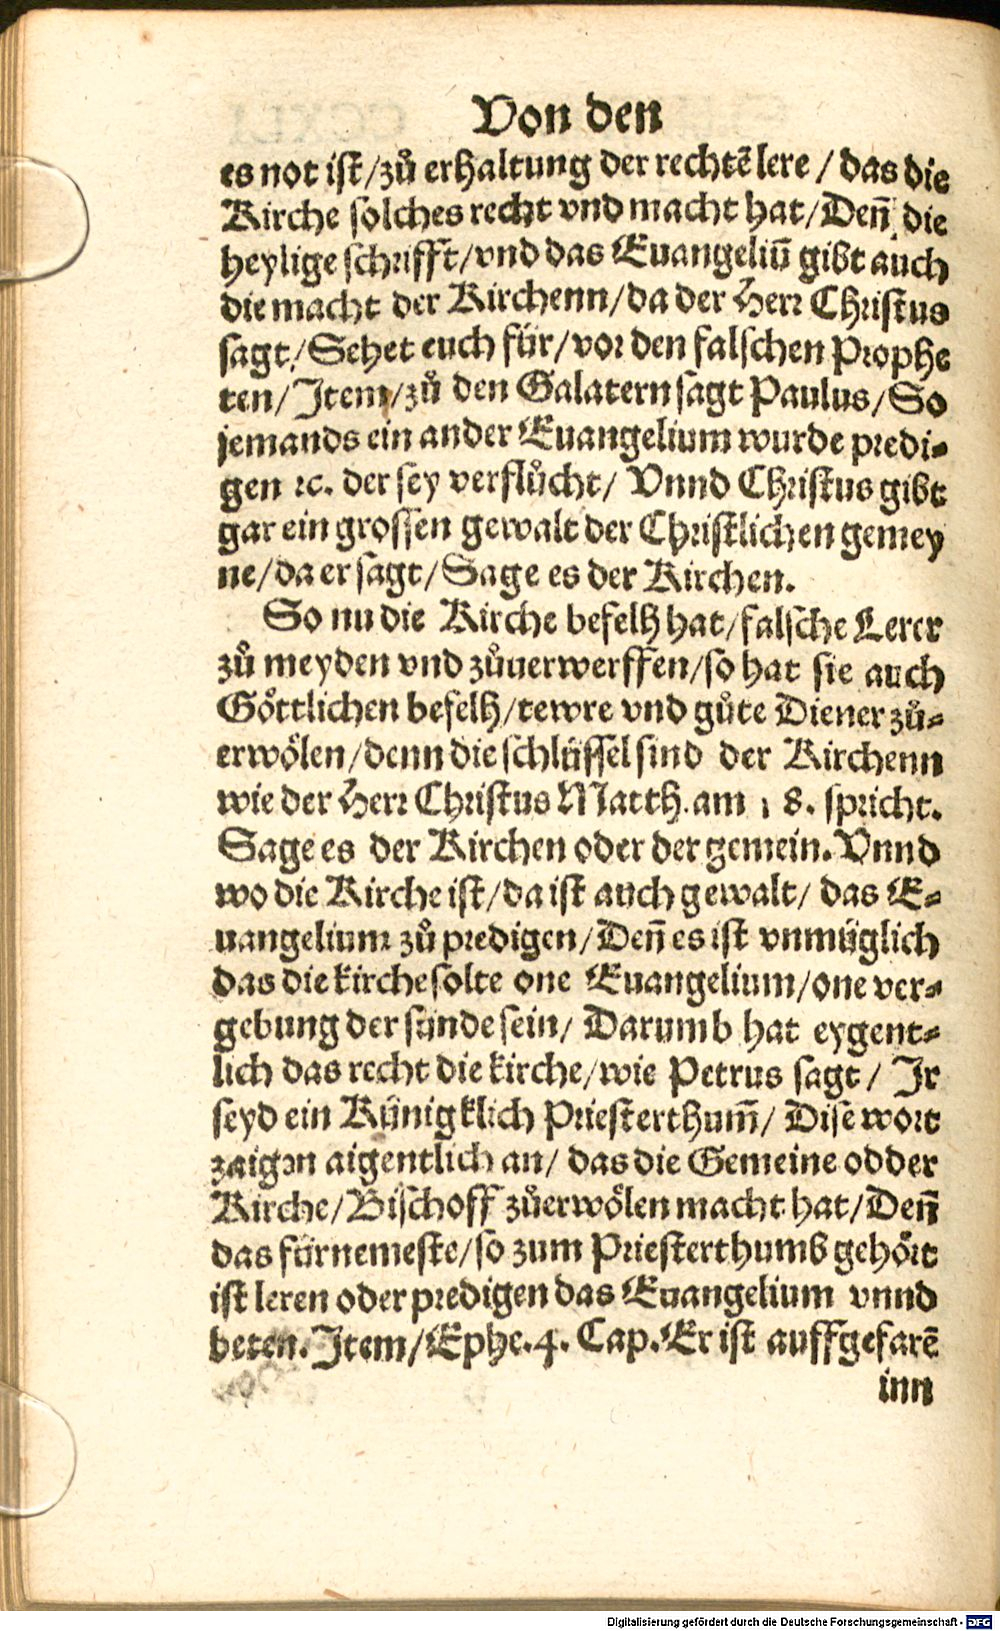 Von den
es not ist/zů erhaltung der rechtẽ lere / das die
Kirche solches recht vnd macht hat/Deñ die
heylige schrifft/vnd das Euangeliũ gibt auch
die macht der Kirchenn/da der Herr Christus
sagt/Sehet euch für/vor den falschen Prophe
ten/Item/zů den Galatern sagt Paulus/So
jemands ein ander Euangelium wurde predi⸗
gen ꝛc. der sey verflůcht/ Vnnd Christus gibt
gar ein grossen gewalt der Christlichen gemey
ne/da er sagt/Sage es der Kirchen.
So nu die Kirche befelh hat/falsche Lerer
zů meyden vnd zůuerwerffen/so hat sie auch
Göttlichen befelh/tewre vnd gůte Diener zů⸗
erwölen/denn die schlüssel sind der Kirchenn
wie der Herr Christus Matth. am 18. spricht.
Sage es der Kirchen oder der gemein. Vnnd
wo die Kirche ist/da ist auch gewalt/ das E⸗
uangelium zů predigen/Deñ es ist vnmüglich
das die kirche solte one Euangelium/one ver⸗
gebung der sünde sein/ Darumb hat eygent⸗
lich das recht die kirche/wie Petrus sagt/ Ir
seyd ein Künigklich Priesterthum̃/ Dise wort
zaigen aigentlich an/ das die Gemeine odder
Kirche/Bischoff zůerwölen macht hat/Deñ
das fürnemeste/so zum Priesterthumb gehört
ist leren oder predigen das Euangelium vnnd
beten. Item/Ephe.4. Cap. Er ist auffgefarẽ
inn
Digitalisierung gefördert durch die Deutsche Forschungsgemeinschaft - DFG